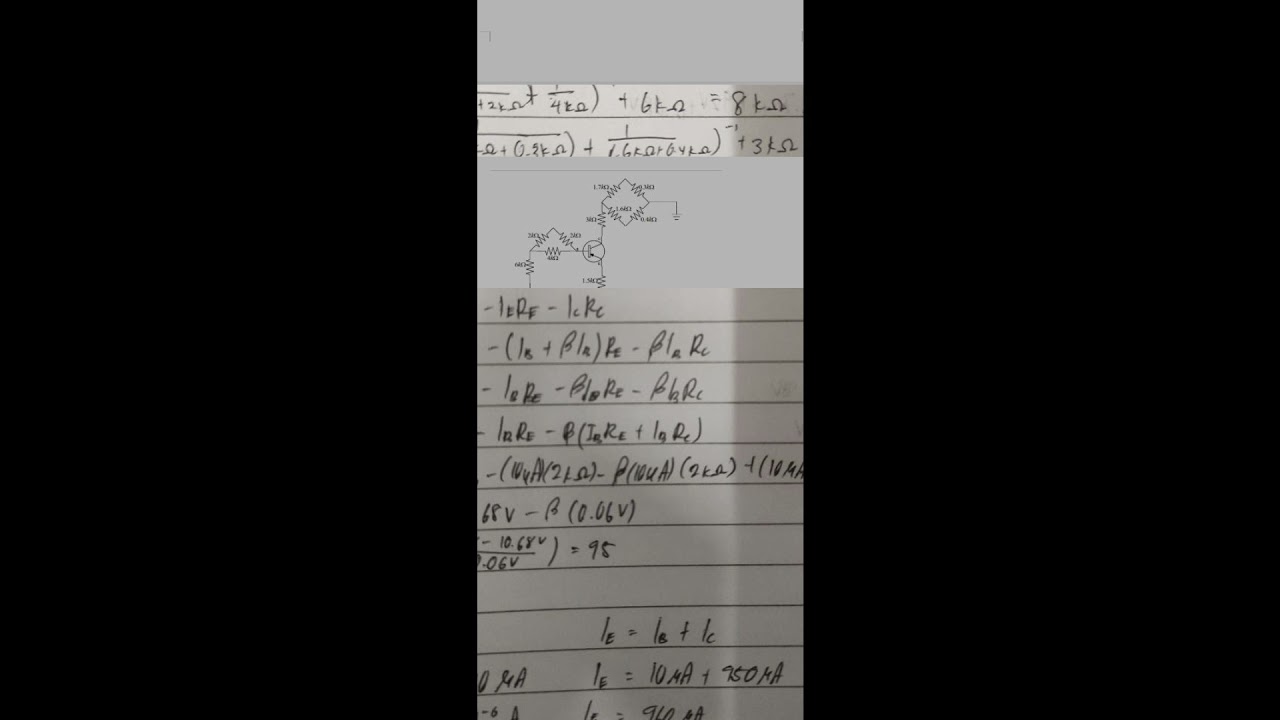 +2kΩ + 1/4kΩ) + 6kΩ = 8kΩ
kΩ + 0.3kΩ) + 1/1.6kΩ+0.4kΩ)⁻¹ + 3kΩ
1.7kΩ 0.3kΩ
1.6kΩ
3kΩ 0.4kΩ
2kΩ 2kΩ
4kΩ
6kΩ
1.5kΩ
- IERE - ICRC
- (IB + βIB)RE - βIBRC
- IBRE - βIBRE - βIBRC
- IBRE - β(IBRE + IBRC)
- (10μA)(2kΩ) - β(10μA)(2kΩ) + (10μA
68V - β(0.06V)
- 10.68V/0.06V) = 95
IE = IB + IC
0μA IE = 10μA + 950μA
-6 A IE = 960μA